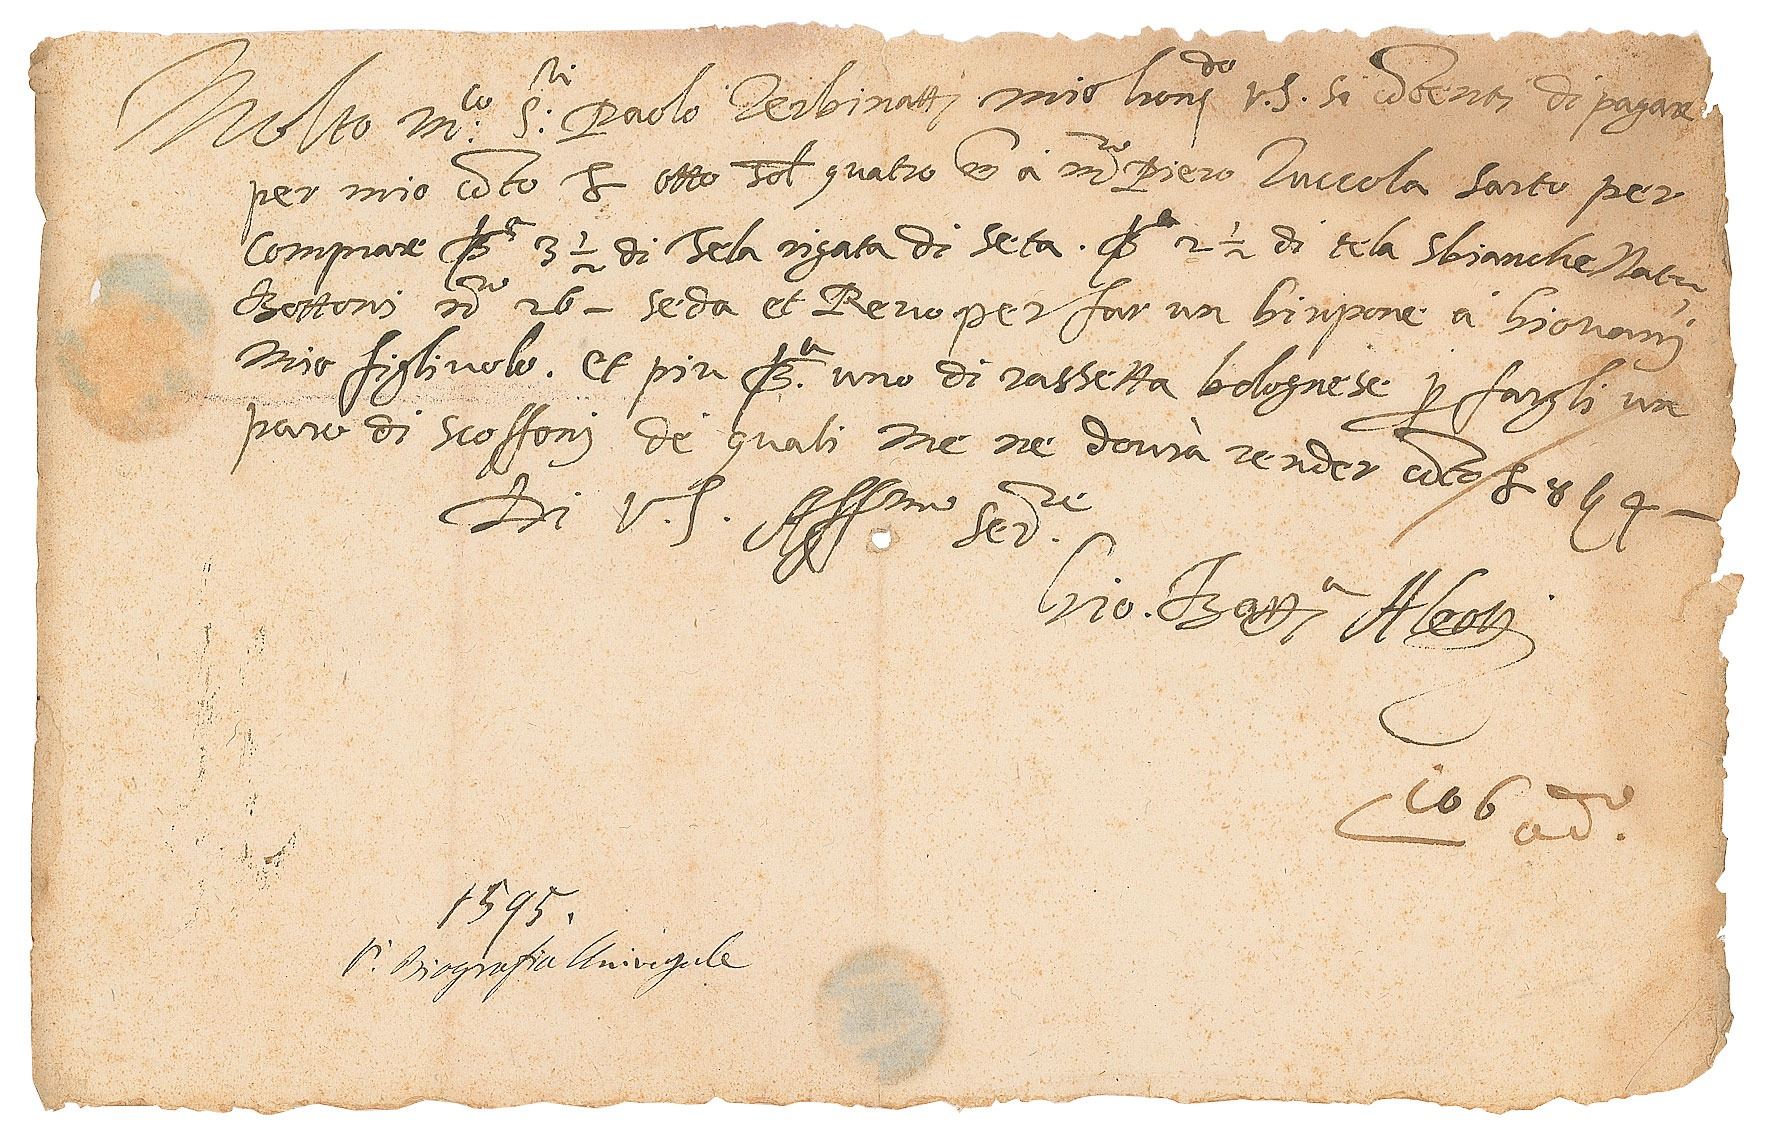 Molto m:co S:ri Paolo Terbinatti mio hon:do V.S. si cotenti di pagare
per mio coto £ otto sol quatro a m:ro Piero Zuccola Sarto per
Comprare Ba 3 1/2 di Tela rigata di Seta. Ba 2 1/2 di tela Sbianchc
Bottoni no 26 – seda et Revo per far un Giupone a Giovanj
Mio figlivolo. et piu Ba. uno di rassetta bolognese p fargli un
paro di scoffonj de quali me ne dovrà render coto £ 8 s 4 –
Di V.S. Affmo Ser:re
Gio. Batta Aleotti
106
1595.
V. Biografia Universale